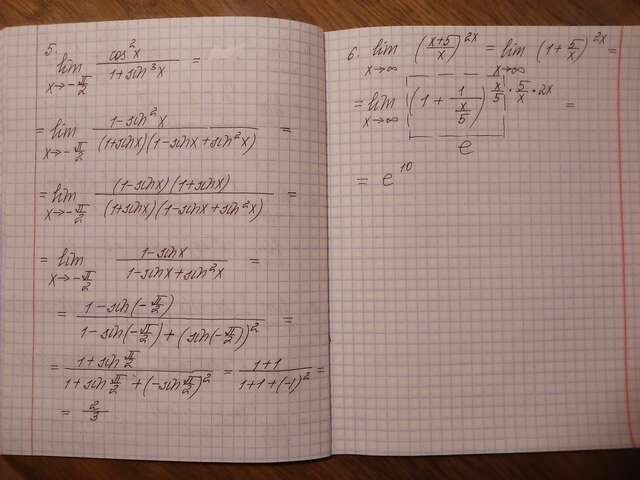 5. lim x→-π/2 cos²x / (1+sin³x) =
= lim x→-π/2 (1-sin²x) / ((1+sinx)(1-sinx+sin²x)) =
= lim x→-π/2 ((1-sinx)(1+sinx)) / ((1+sinx)(1-sinx+sin²x)) =
= lim x→-π/2 (1-sinx) / (1-sinx+sin²x) =
= (1-sin(-π/2)) / (1-sin(-π/2)+(sin(-π/2))²) =
= (1+sin π/2) / (1+sin π/2+(-sin π/2)²) = (1+1) / (1+1+(-1)²) =
= 2/3
6. lim x→∞ ((x+5)/x)^(2x) = lim x→∞ (1+5/x)^(2x) =
= lim x→∞ (1+1/(x/5))^(x/5 · 5/x · 2x) =
e
= e^10